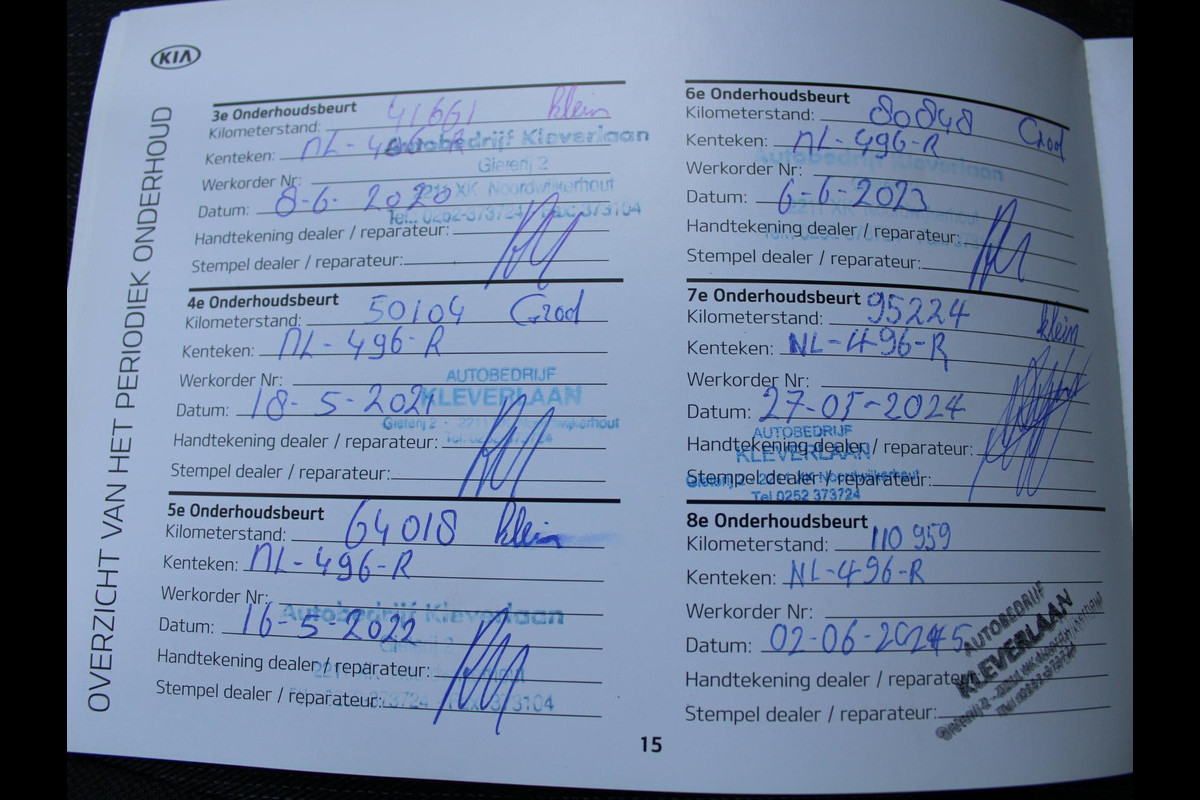 KIA
OVERZICHT VAN HET PERIODIEK ONDERHOUD
3e Onderhoudsbeurt
Kilometerstand: 41661 klein
Kenteken: NL-496-R
Autobedrijf Kleverlaan
Gieterij 2
Werkorder Nr:
2211 XK Noordwijkerhout
Datum: 8-6-2020
Tel.: 0252-373724 Fax: 373104
Handtekening dealer / reparateur:
Stempel dealer / reparateur:
4e Onderhoudsbeurt
Kilometerstand: 50104 Groot
Kenteken: NL-496-R
Werkorder Nr:
AUTOBEDRIJF
KLEVERLAAN
Datum: 18-5-2021
Gieterij 2 - 2211 XK Noordwijkerhout
Tel. 0252 373724
Handtekening dealer / reparateur:
Stempel dealer / reparateur:
5e Onderhoudsbeurt
Kilometerstand: 64018 klein
Kenteken: NL-496-R
Werkorder Nr:
Autobedrijf Kleverlaan
Datum: 16-5-2022
Gieterij 2
Handtekening dealer / reparateur:
2211 XK Noordwijkerhout
Stempel dealer / reparateur:
Tel.: 0252-373724 Fax: 373104
6e Onderhoudsbeurt
Kilometerstand: 80848 Groot
Kenteken: NL-496-R
Autobedrijf Kleverlaan
Werkorder Nr:
Datum: 6-6-2023
2211 XK Noordwijkerhout
Handtekening dealer / reparateur:
Stempel dealer / reparateur:
7e Onderhoudsbeurt
Kilometerstand: 95224 klein
Kenteken: NL-496-R
Werkorder Nr:
Datum: 27-05-2024
AUTOBEDRIJF
Handtekening dealer / reparateur:
KLEVERLAAN
Stempel dealer / reparateur:
Gieterij 2 - 2211 XK Noordwijkerhout
Tel 0252 373724
8e Onderhoudsbeurt
Kilometerstand: 110 959
Kenteken: NL-496-R
Werkorder Nr:
Datum: 02-06-2025
AUTOBEDRIJF
KLEVERLAAN
Gieterij 2 - 2211 XK Noordwijkerhout
Tel 0252 373724
Handtekening dealer / reparateur:
Stempel dealer / reparateur:
15